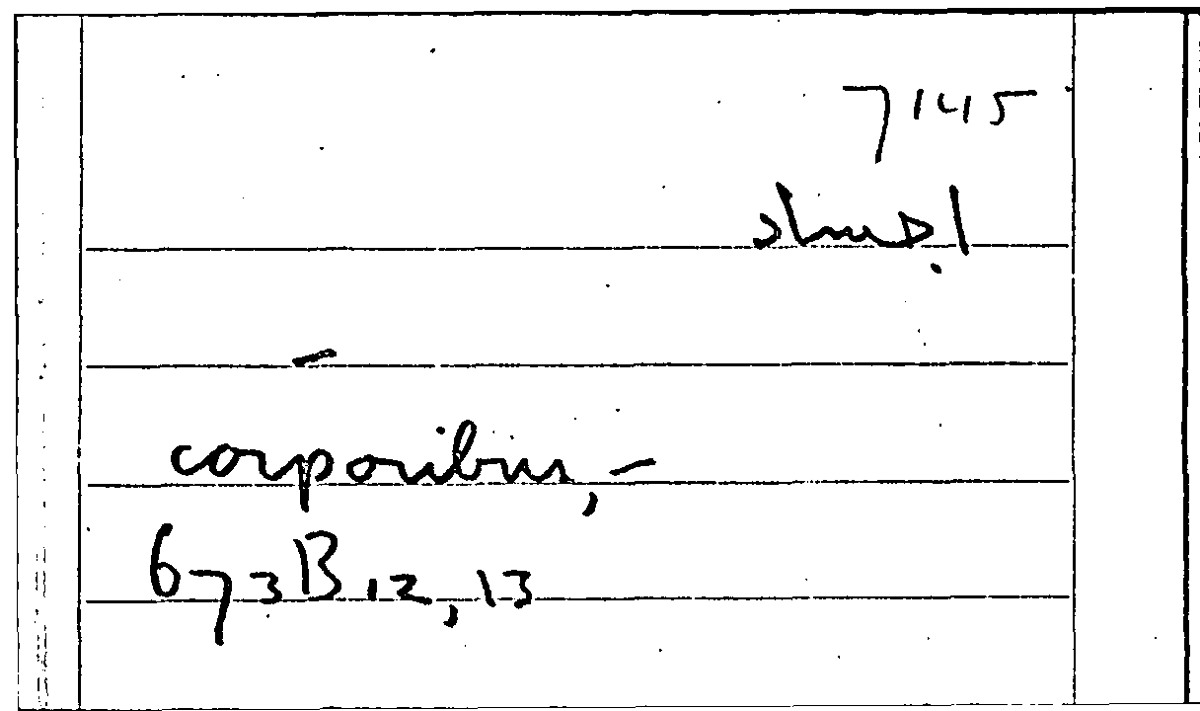 7145
اجساد
—
corporibus, —
673B12,13